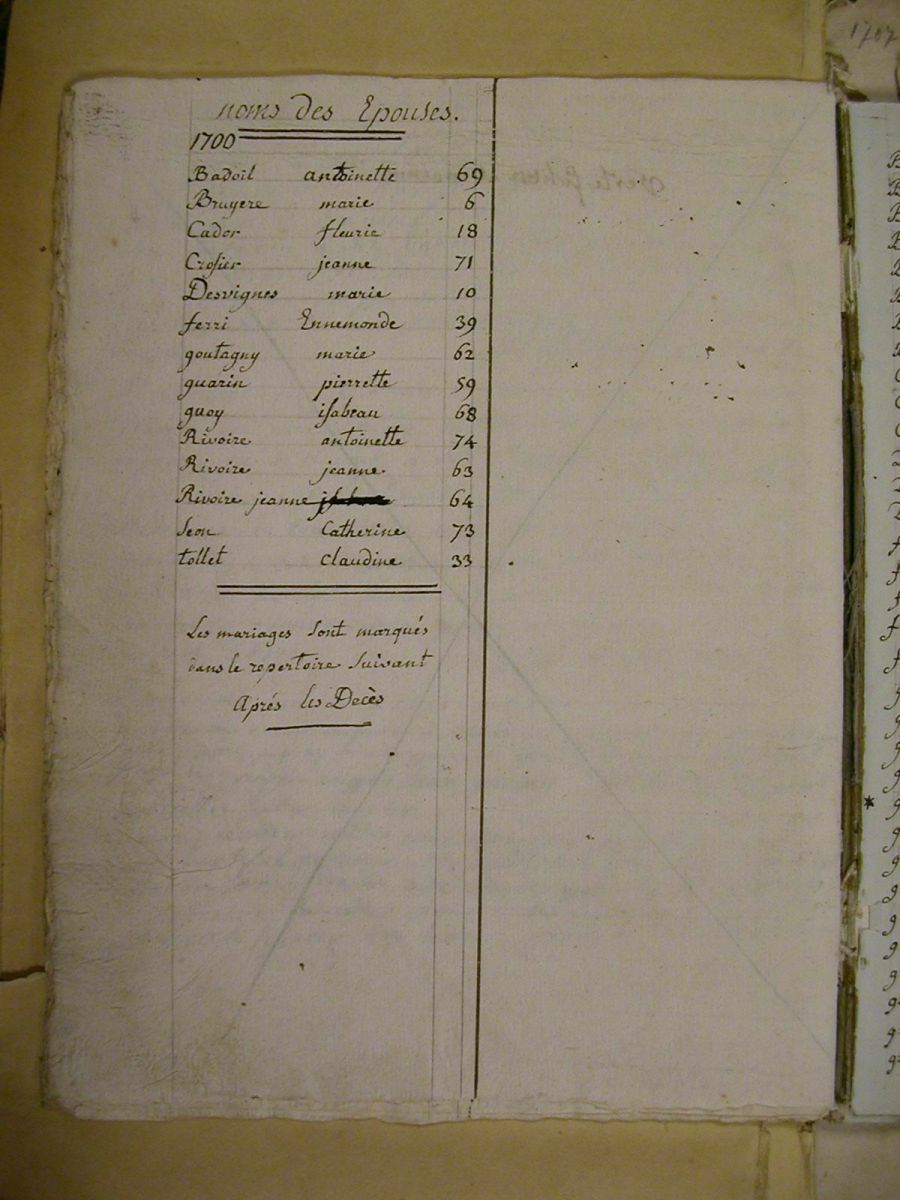 noms des Epouses.
1700
Badoil antoinette 69
Bruyere marie 6
Cador fleurie 18
Crosier jeanne 71
Desvignes marie 10
ferri Ennemonde 39
goutagny marie 62
guarin pierrette 59
guoy isabeau 68
Rivoire antoinette 74
Rivoire jeanne 63
Rivoire jeanne 64
Seon Catherine 73
tollet Claudine 33
Les mariages sont marqués
dans le repertoire suivant
Aprés les Decès
1707